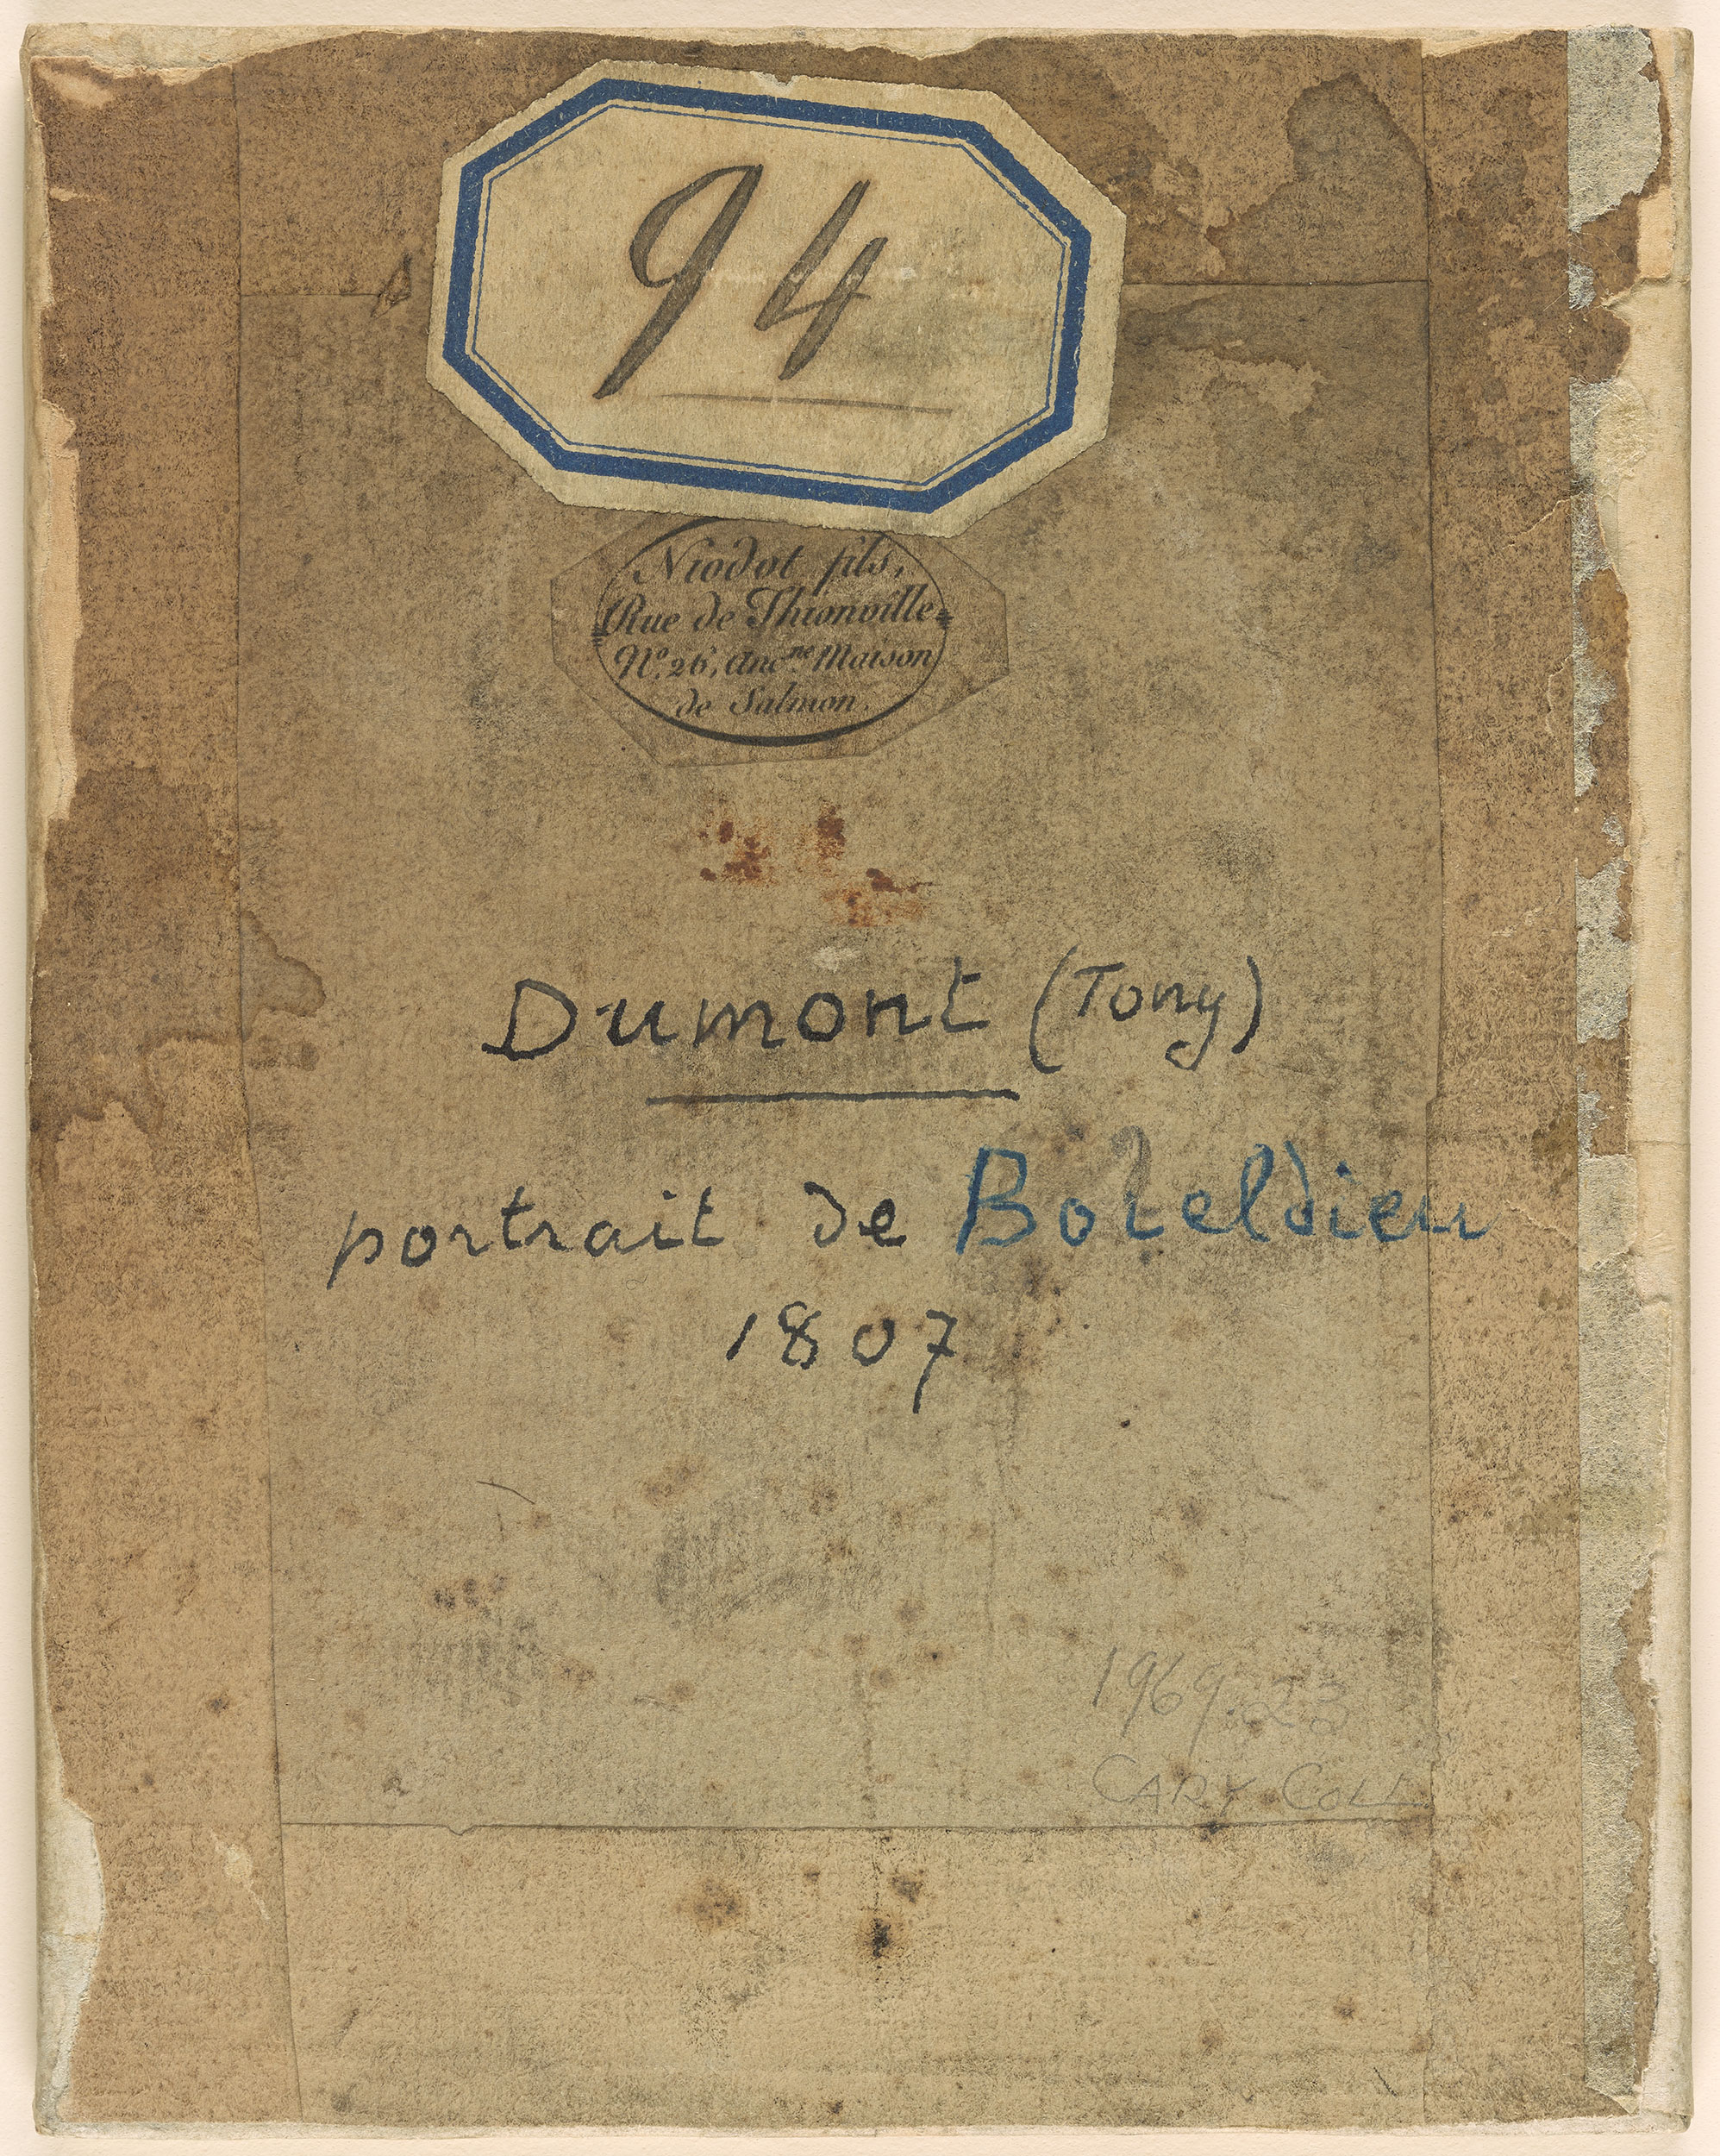 94
Niodot fils,
Rue de Thionville
Nº. 26, Anc.ne Maison
de Salmon.
Dumont (Tony)
portrait de Boieldieu
1807
1969.23
CARY COLL.